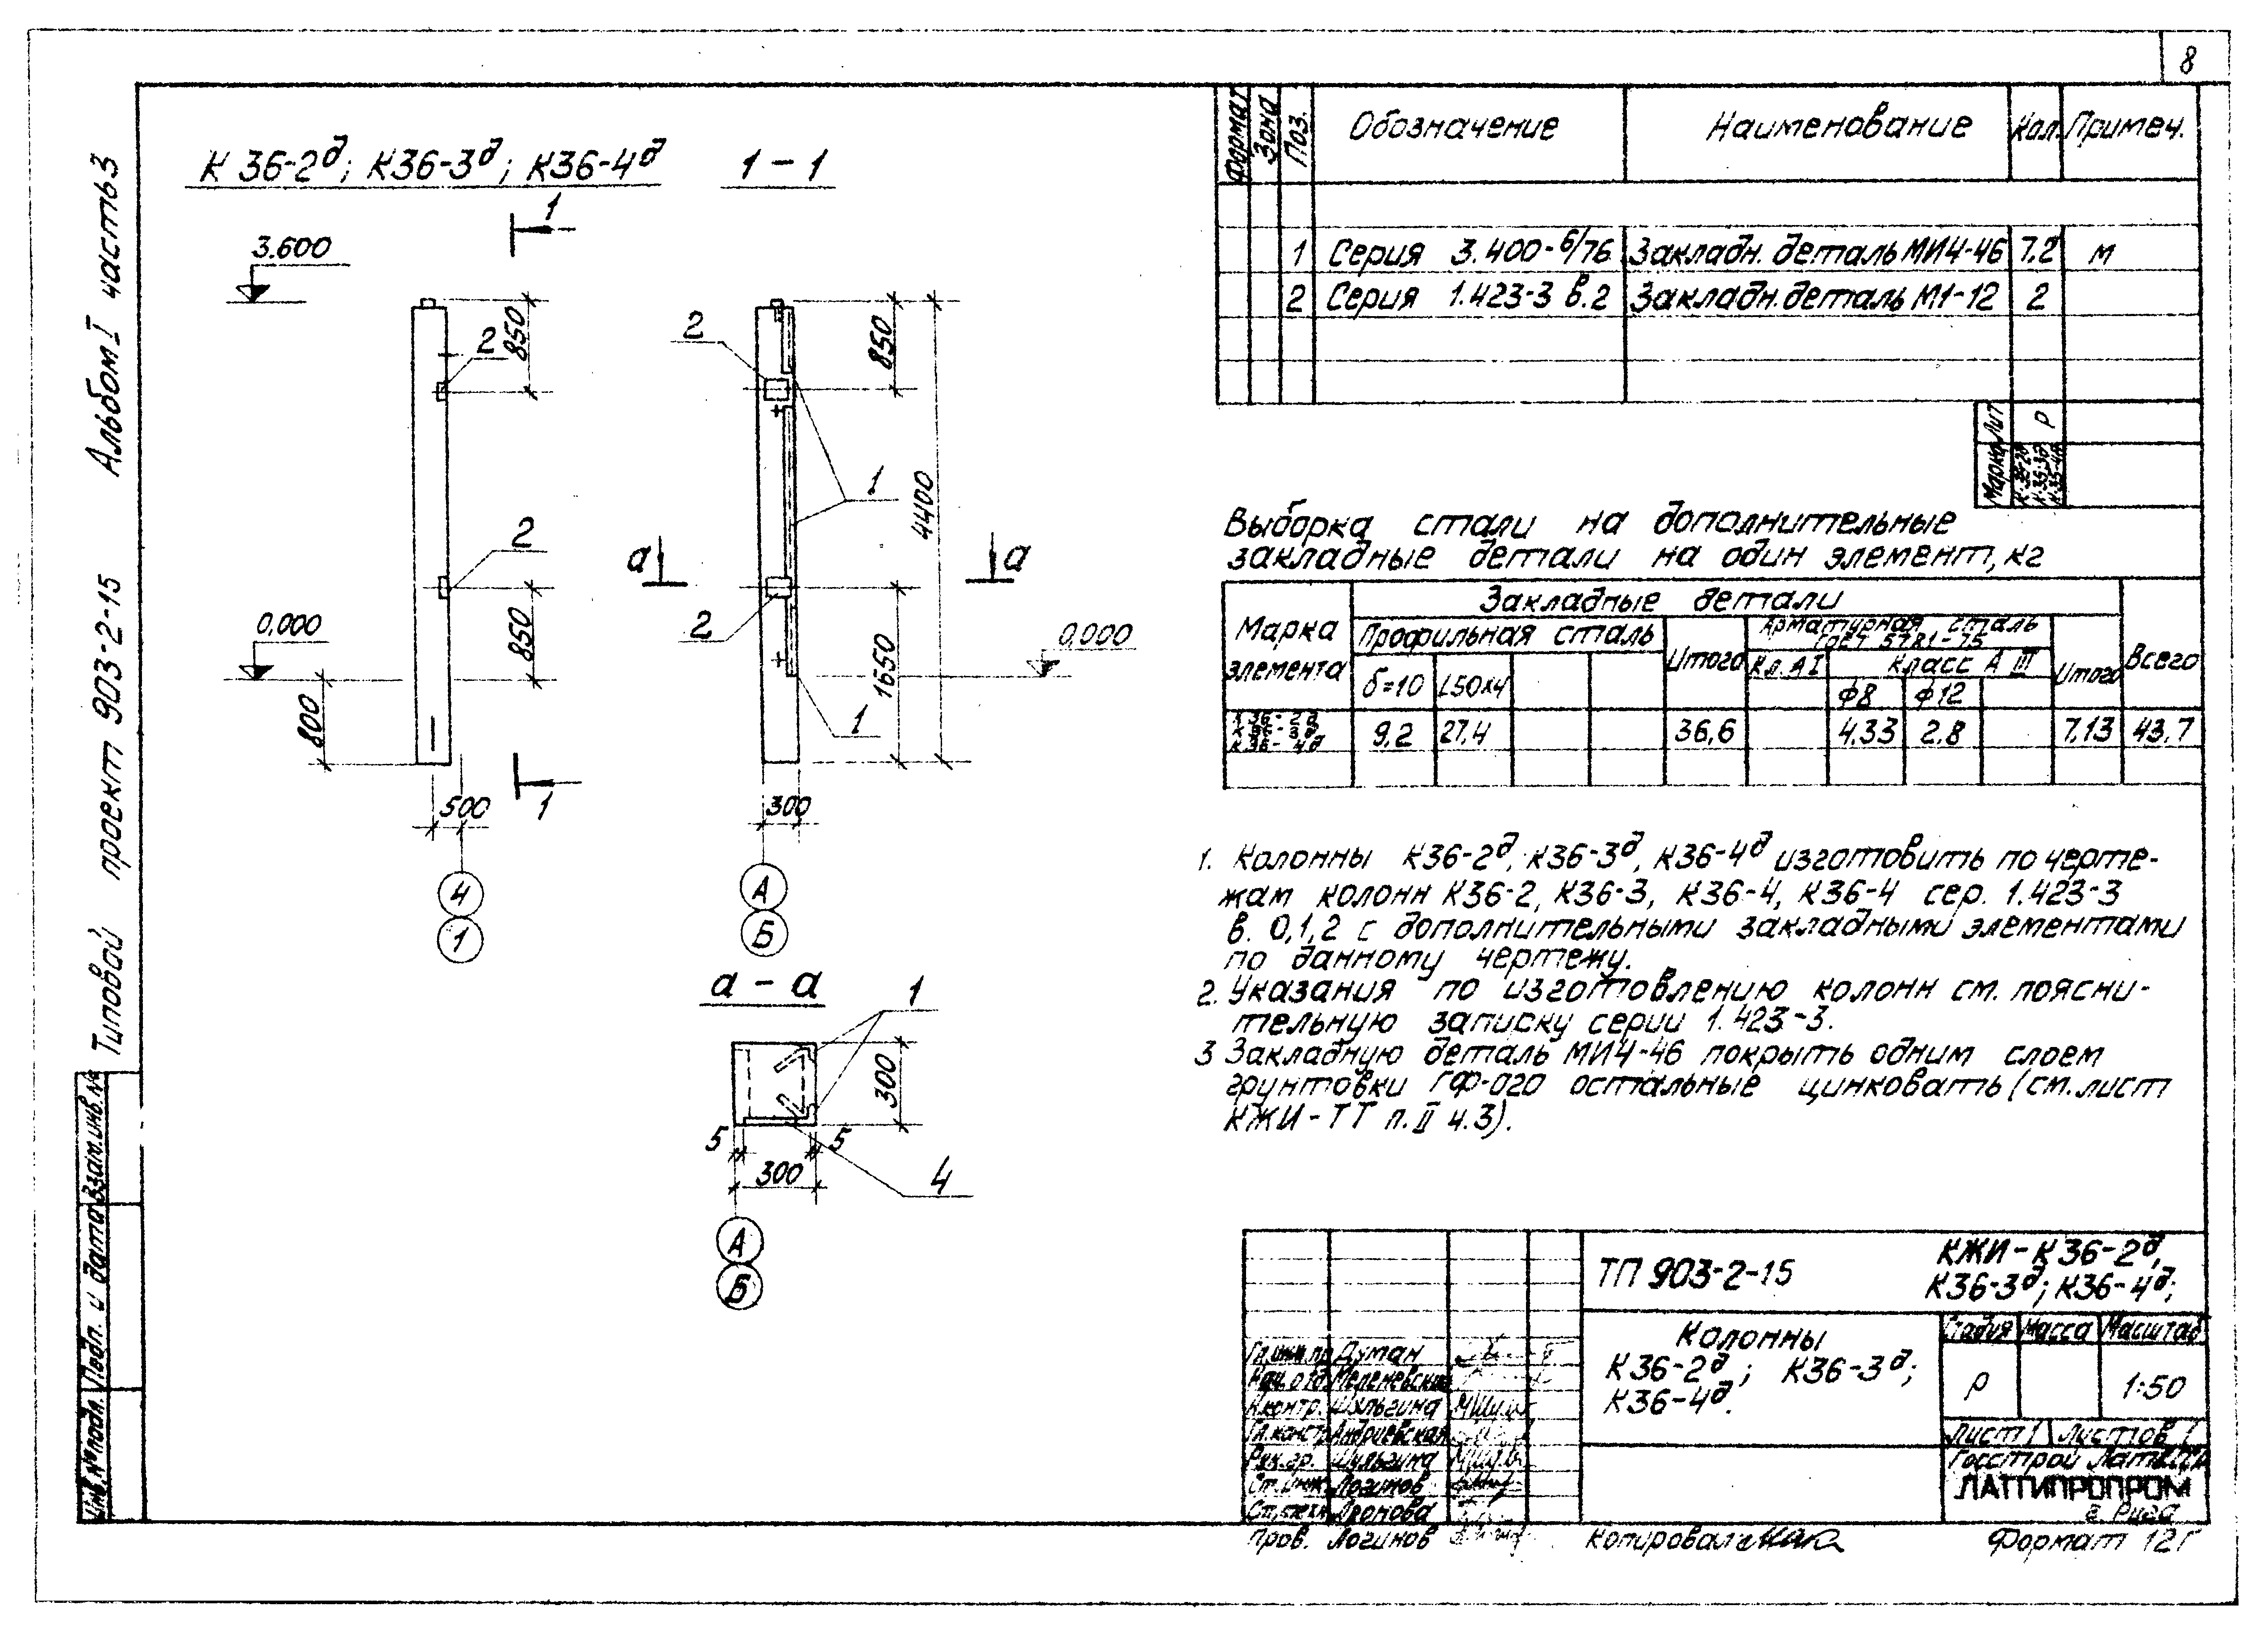 8
Типовой проект 903-2-15 Альбом I часть 3
К 36-2д; К36-3д; К36-4д
1 - 1
1
3.600
2
850
2
850
1
4400
2
а
а
0,000
850
2
1650
0,000
800
1
500
1
300
4
1
А
Б
а - а
1
300
5
5
300
4
А
Б
Формат
Зона
Поз.
Обозначение
Наименование
Кол.
Примеч.
1 Серия 3.400-6/76 Закладн. деталь МИ4-46 7,2 м
2 Серия 1.423-3 в.2 Закладн. деталь М1-12 2
Лит
Р
Марка
Выборка стали на дополнительные
закладные детали на один элемент, кг
Марка элемента
Закладные детали
Всего
Профильная сталь
Итого
Арматурная сталь
ГОСТ 5781-75
Итого
Кл. АI
Класс А III
б=10
L50х4
Ф8
Ф12
К36-2д
К36-3д
К36-4д
9,2 27,4 36,6 4,33 2.8 7,13 43,7
1. Колонны К36-2д, К36-3д, К36-4д изготовить по черте-
жам колонн К36-2, К36-3, К36-4, К36-4 сер. 1.423-3
в. 0,1,2 с дополнительными закладными элементами
по данному чертежу.
2. Указания по изготовлению колонн см. поясни-
тельную записку серии 1.423-3.
3 Закладную деталь МИ4-46 покрыть одним слоем
грунтовки ГФ-020 остальные цинковать (см. лист
КЖИ-ТТ п. II ч.3).
ТП 903-2-15
КЖИ-К36-2д,
К36-3д; К36-4д;
Колонны
К36-2д; К36-3д;
К36-4д.
Стадия Масса Масштаб
Р 1:50
Лист 1 Листов 1
Госстрой Латв.ССР
ЛАТГИПРОПРОМ
г. Рига
Гл.инж.пр Думан
Нач.отд. Меленевский
Н.контр. Шульгина
Гл.констр Андриевская
Рук.гр. Шульгина
Ст.инж. Логинов
Ст.техн
Пров. Логинов
Копировал
Формат 12Г
Инв.№ подл.
Подп. и дата
Взам.инв.№